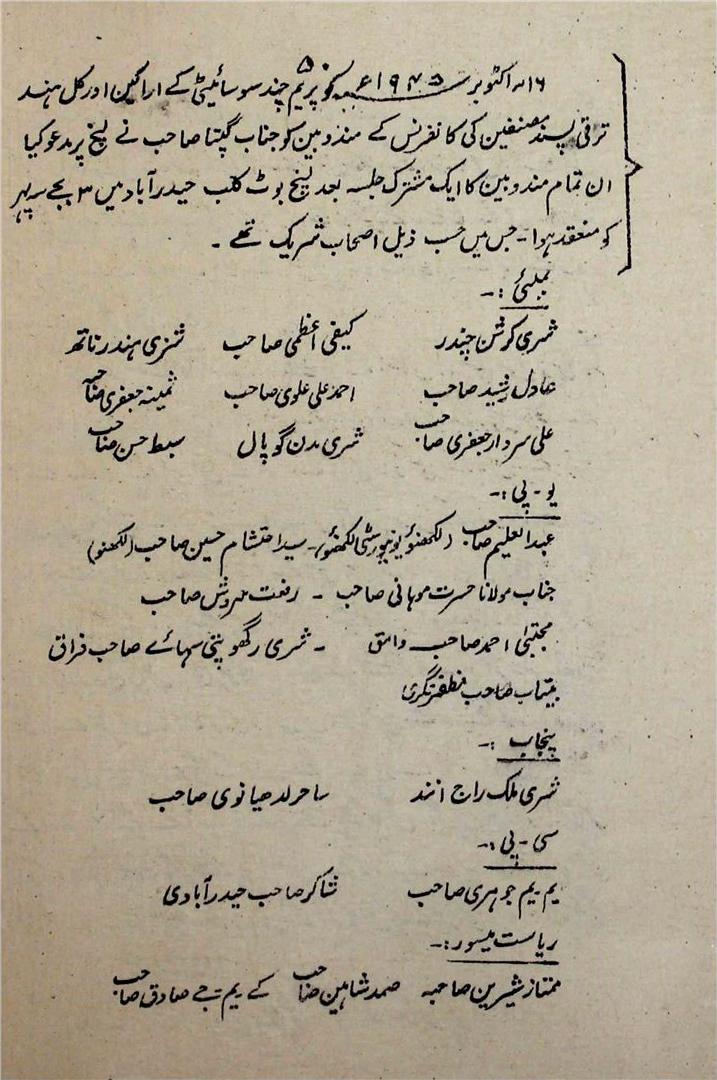 ۵۰
۱۶؍ اکتوبر ۱۹۴۵ء کو پریم چند سوسائیٹی کے اراکین اور کل ہند
ترقی پسند مصنفین کی کانفرنس کے مندوبین کو جناب گپتا صاحب نے لنچ پر مدعو کیا
ان تمام مندوبین کا ایک مشترک جلسہ بعد لنچ بوٹ کلب حیدرآباد میں ۳ بجے سہ پہر
کو منعقد ہوا ۔ جس میں حسب ذیل اصحاب شریک تھے ۔
بمبئی :۔
شری کرشن چندر کیفی اعظمی صاحب شری مہندر ناتھ
عادل رشید صاحب احمد علی علوی صاحب ثمینہ جعفری صاحبہ
علی سردار جعفری صاحب شری مدن گوپال سبط حسن صاحب
یو ۔ پی :۔
عبدالعلیم صاحب (لکھنؤ یونیورسٹی لکھنؤ) ۔ سید احتشام حسین صاحب (لکھنو)
جناب مولانا حسرت موہانی صاحب ۔ رفعت سروش صاحب
مجتبیٰ احمد صاحب وامق ۔ شری رگھوپتی سہائے صاحب فراق
بیتاب صاحب مظفرنگری
پنجاب :۔
شری ملک راج انند ساحر لدھیانوی صاحب
سی ۔ پی :۔
یم یم جوہری صاحب شاکر صاحب حیدرآبادی
ریاست میسور :۔
ممتاز شیرین صاحبہ صمد شاہین صاحب کے یم جے صادق صاحب